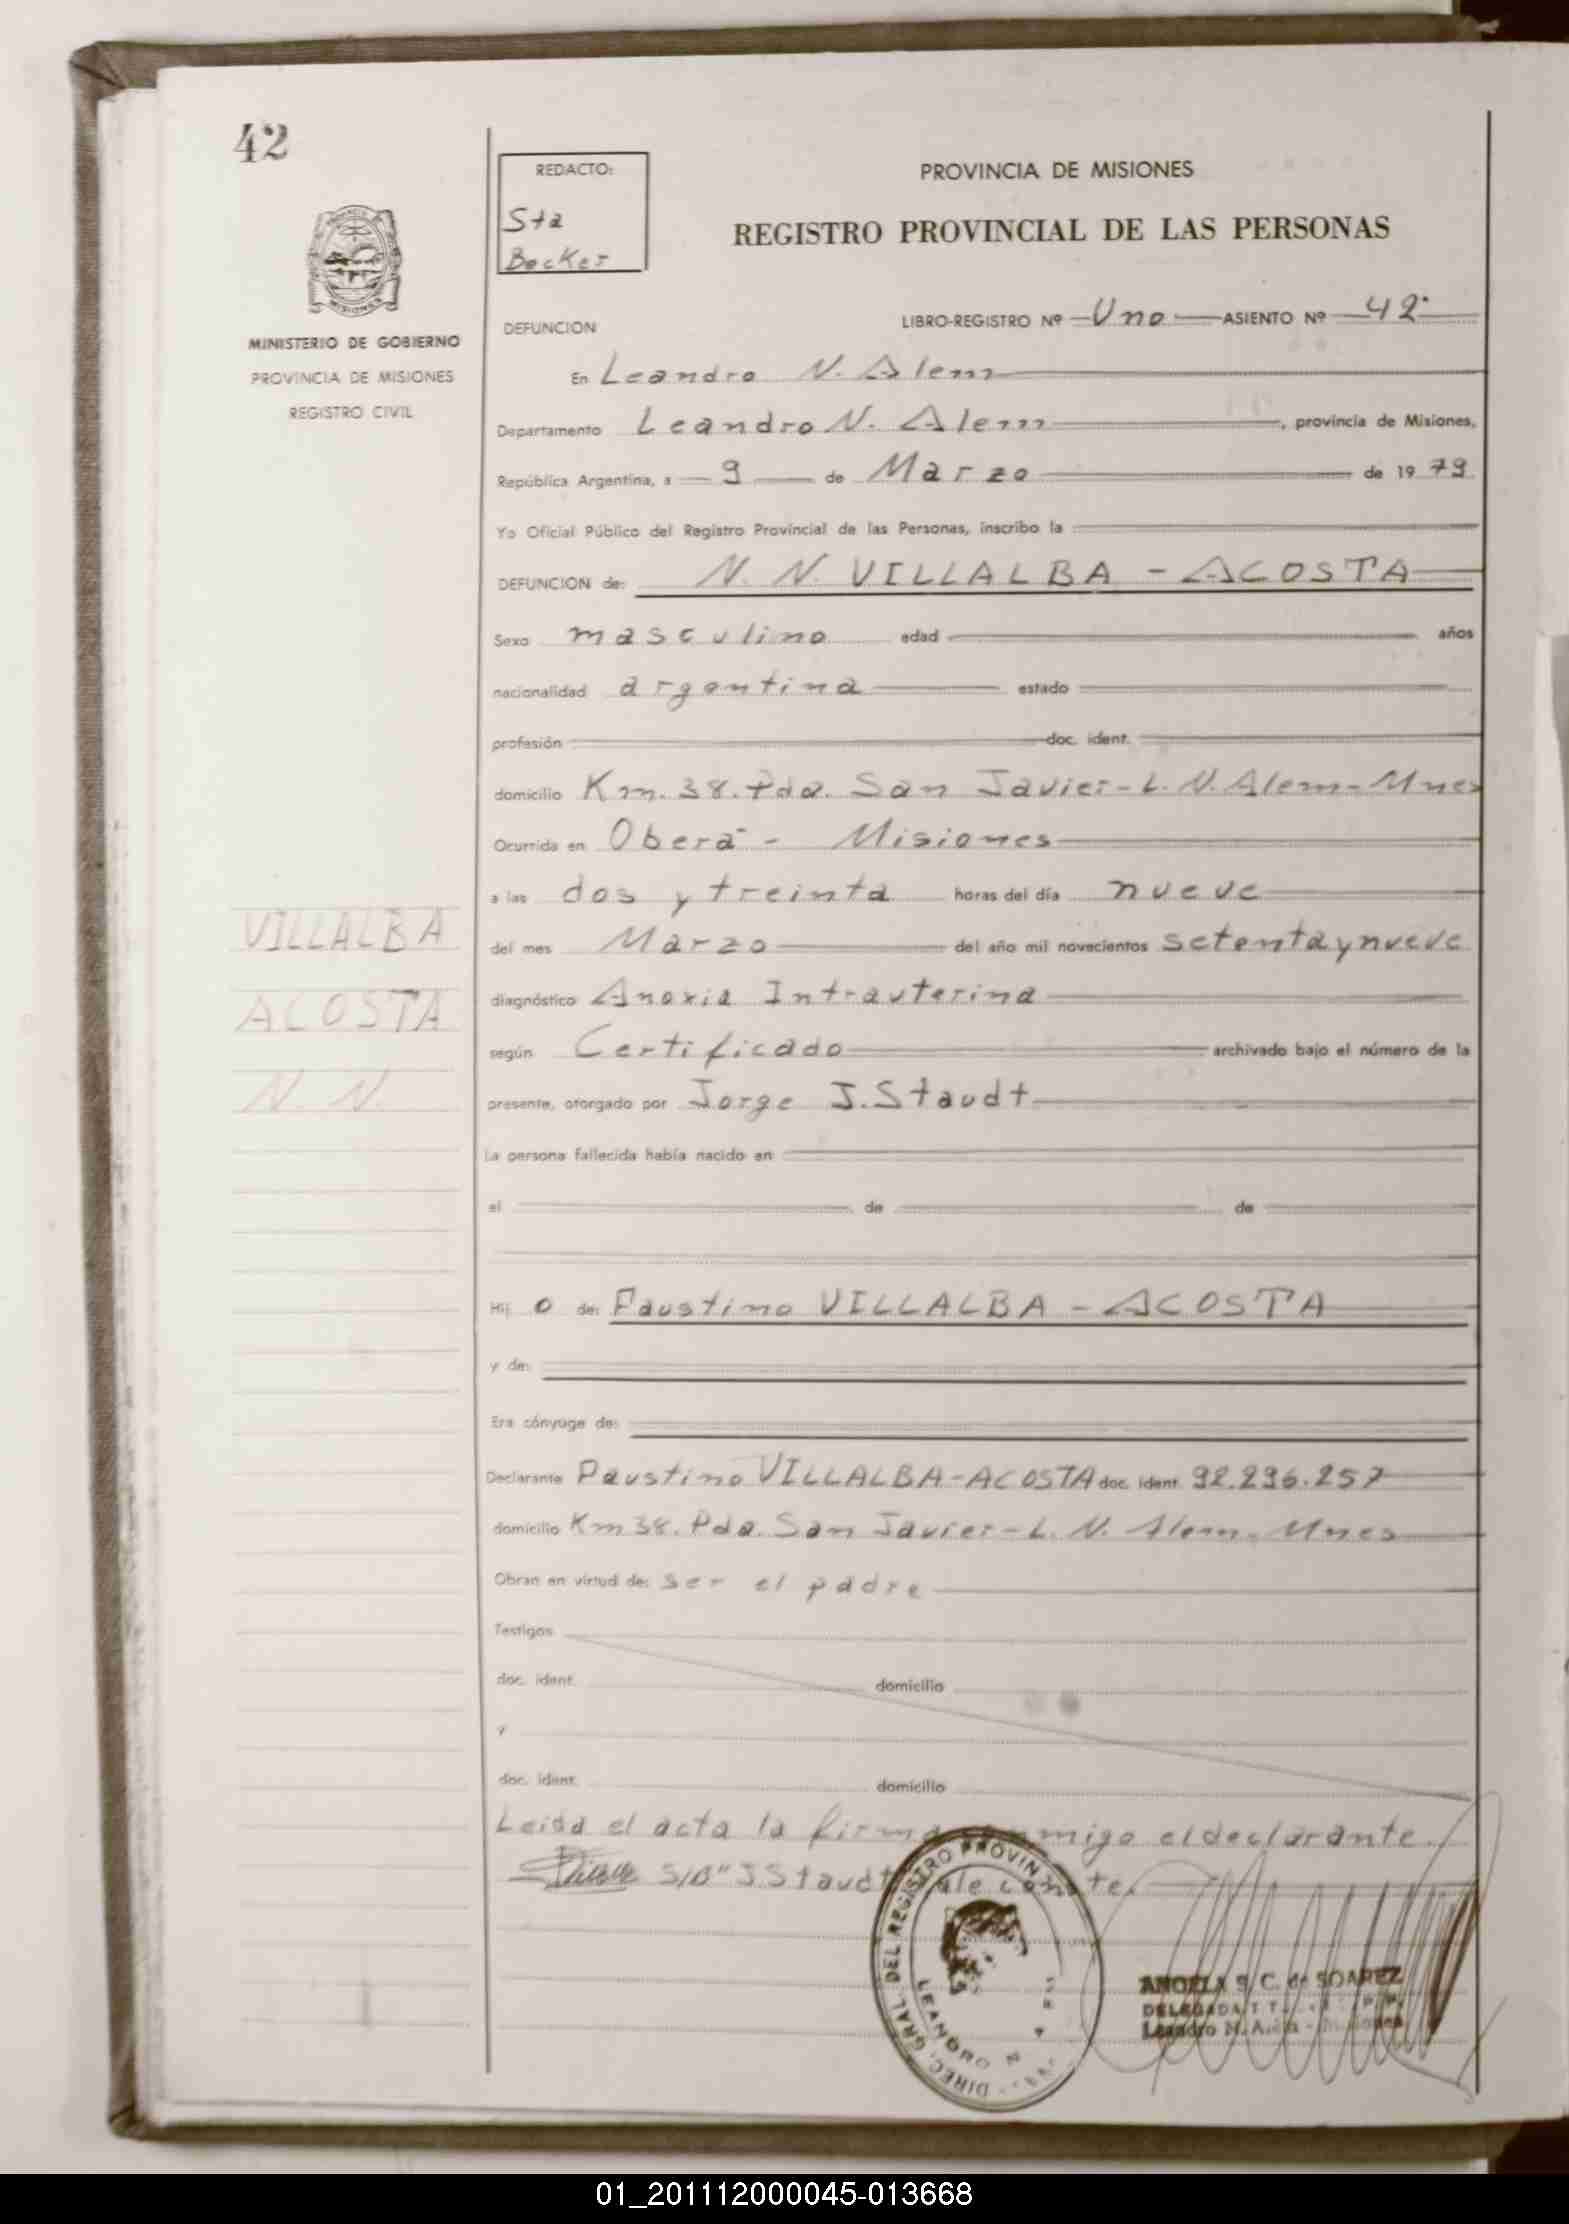 42
REDACTO:
Sta
Becker
PROVINCIA DE MISIONES
REGISTRO PROVINCIAL DE LAS PERSONAS
MISIONES
MINISTERIO DE GOBIERNO
PROVINCIA DE MISIONES
REGISTRO CIVIL
DEFUNCION
LIBRO-REGISTRO Nº Uno ASIENTO Nº 42
En Leandro N. Alem
Departamento Leandro N. Alem, provincia de Misiones,
República Argentina, a 9 de Marzo de 1979
Yo Oficial Público del Registro Provincial de las Personas, inscribo la
DEFUNCION de: N. N. VILLALBA - ACOSTA
Sexo masculino edad años
nacionalidad argentina estado
profesión doc. ident.
domicilio Km. 38. Pda. San Javier - L. N. Alem - Mnes
Ocurrida en Oberá - Misiones
a las dos y treinta horas del día nueve
del mes Marzo del año mil novecientos setenta y nueve
diagnóstico Anoxia Intrauterina
según Certificado archivado bajo el número de la
presente, otorgado por Jorge J. Staudt
La persona fallecida había nacido en
el de de
Hij o de: Faustino VILLALBA - ACOSTA
y de:
Era cónyuge de:
Declarante Faustino VILLALBA - ACOSTA doc. ident. 92.296.257
domicilio Km 38. Pda. San Javier - L. N. Alem. Mnes
Obran en virtud de: ser el padre
Testigos
doc. ident. domicilio
y
doc. ident. domicilio
Leida el acta la firma conmigo el declarante.
S/B" J. Staudt" vale conste.
VILLALBA
ACOSTA
N. N.
DIREC. GRAL. DEL REGISTRO PROVIN
LEANDRO N.
ANGELA S. C. de SOAREZ
DELEGADA
Leandro N. Alem - Misiones
01_201112000045-013668